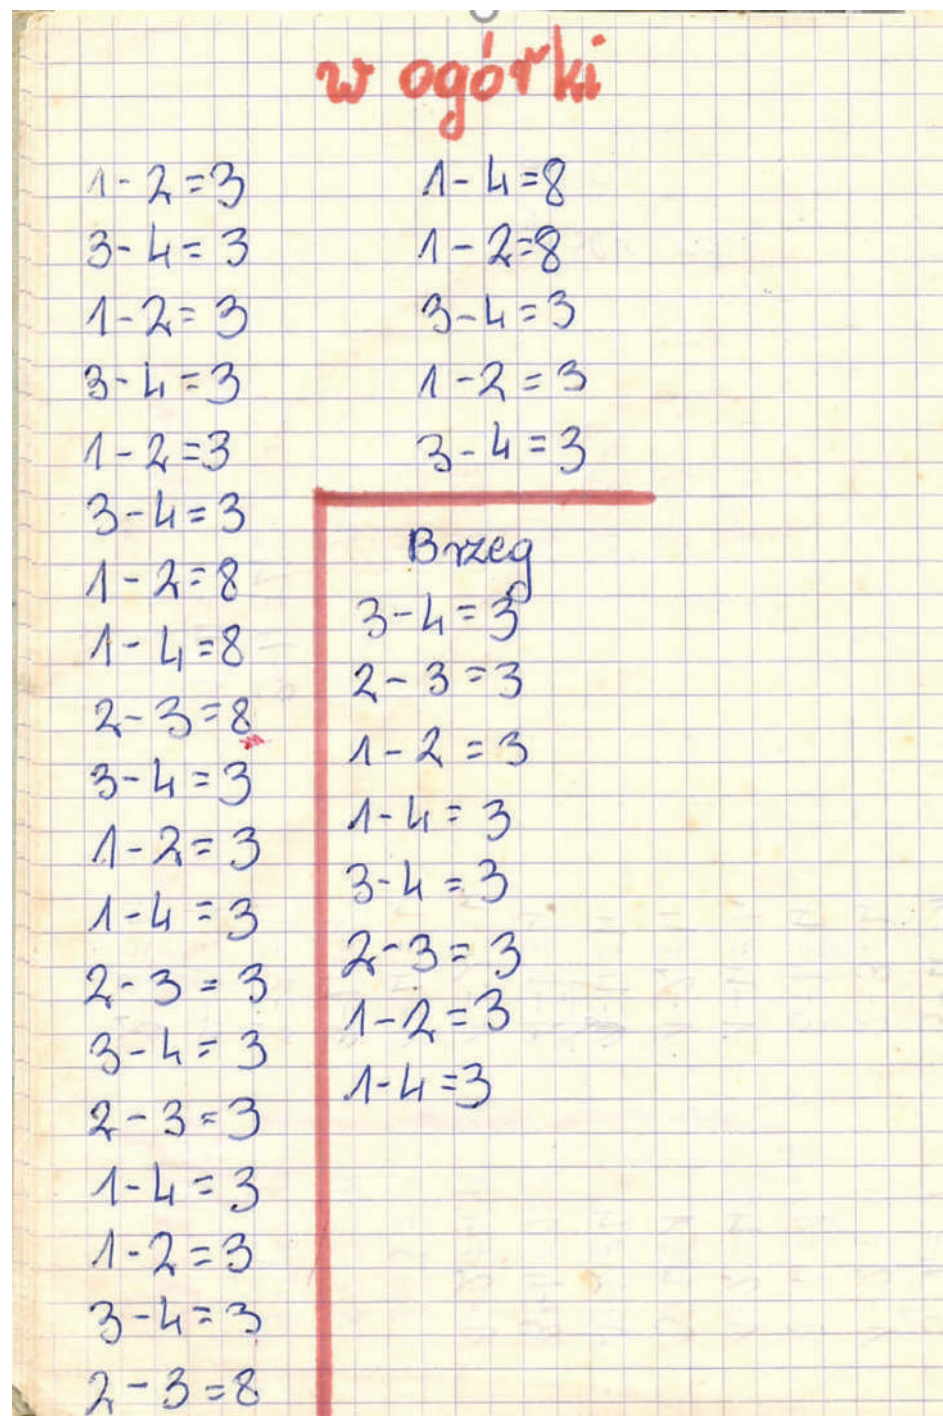 w ogórki
1-2=3
3-4=3
1-2=3
3-4=3
1-2=3
3-4=3
1-2=8
1-4=8
2-3=8
3-4=3
1-2=3
1-4=3
2-3=3
3-4=3
2-3=3
1-4=3
1-2=3
3-4=3
2-3=8
1-4=8
1-2=8
3-4=3
1-2=3
3-4=3
Brzeg
3-4=3
2-3=3
1-2=3
1-4=3
3-4=3
2-3=3
1-2=3
1-4=3